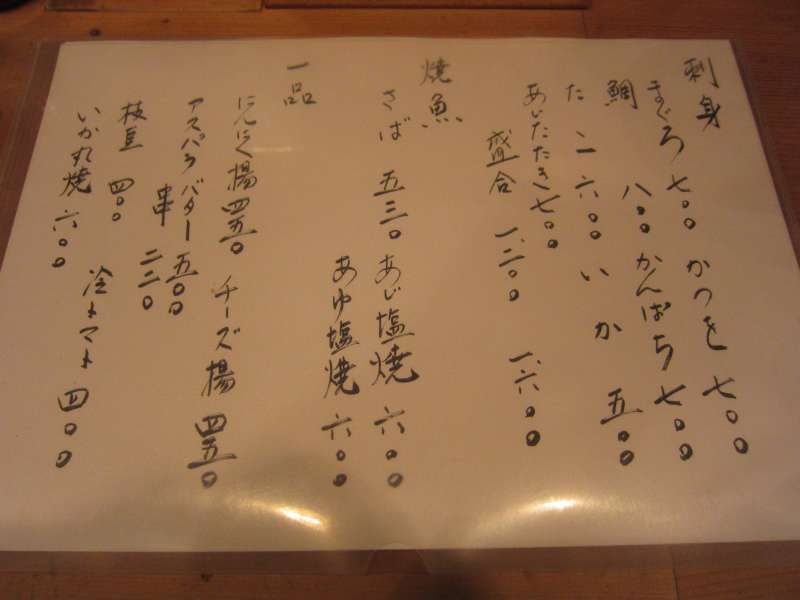 刺身
まぐろ 七〇〇 かつを 七〇〇
鯛 八〇〇 かんぱち 七〇〇
たこ 六〇〇 いか 五〇〇
あじたたき 七〇〇
盛合 一、二〇〇 一、六〇〇
焼魚
さば 五三〇 あじ塩焼 六〇〇
あゆ塩焼 六〇〇
一品
にんにく揚 四五〇 チーズ揚 四五〇
アスパラバター 五〇〇
串 二二〇
枝豆 四〇〇 冷トマト 四〇〇
いか丸焼 六〇〇